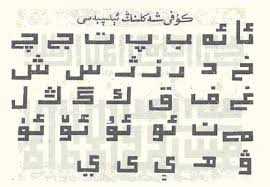 كۇفى شەكلىنىڭ ئېلىپبەسى
ئا ئە ب پ ت ج چ
خ د ر ز ژ س ش
غ ف ق ك گ ڭ ل
م ن ئو ئۇ ئۆ ئۈ
ۋ ھ ې ى ي